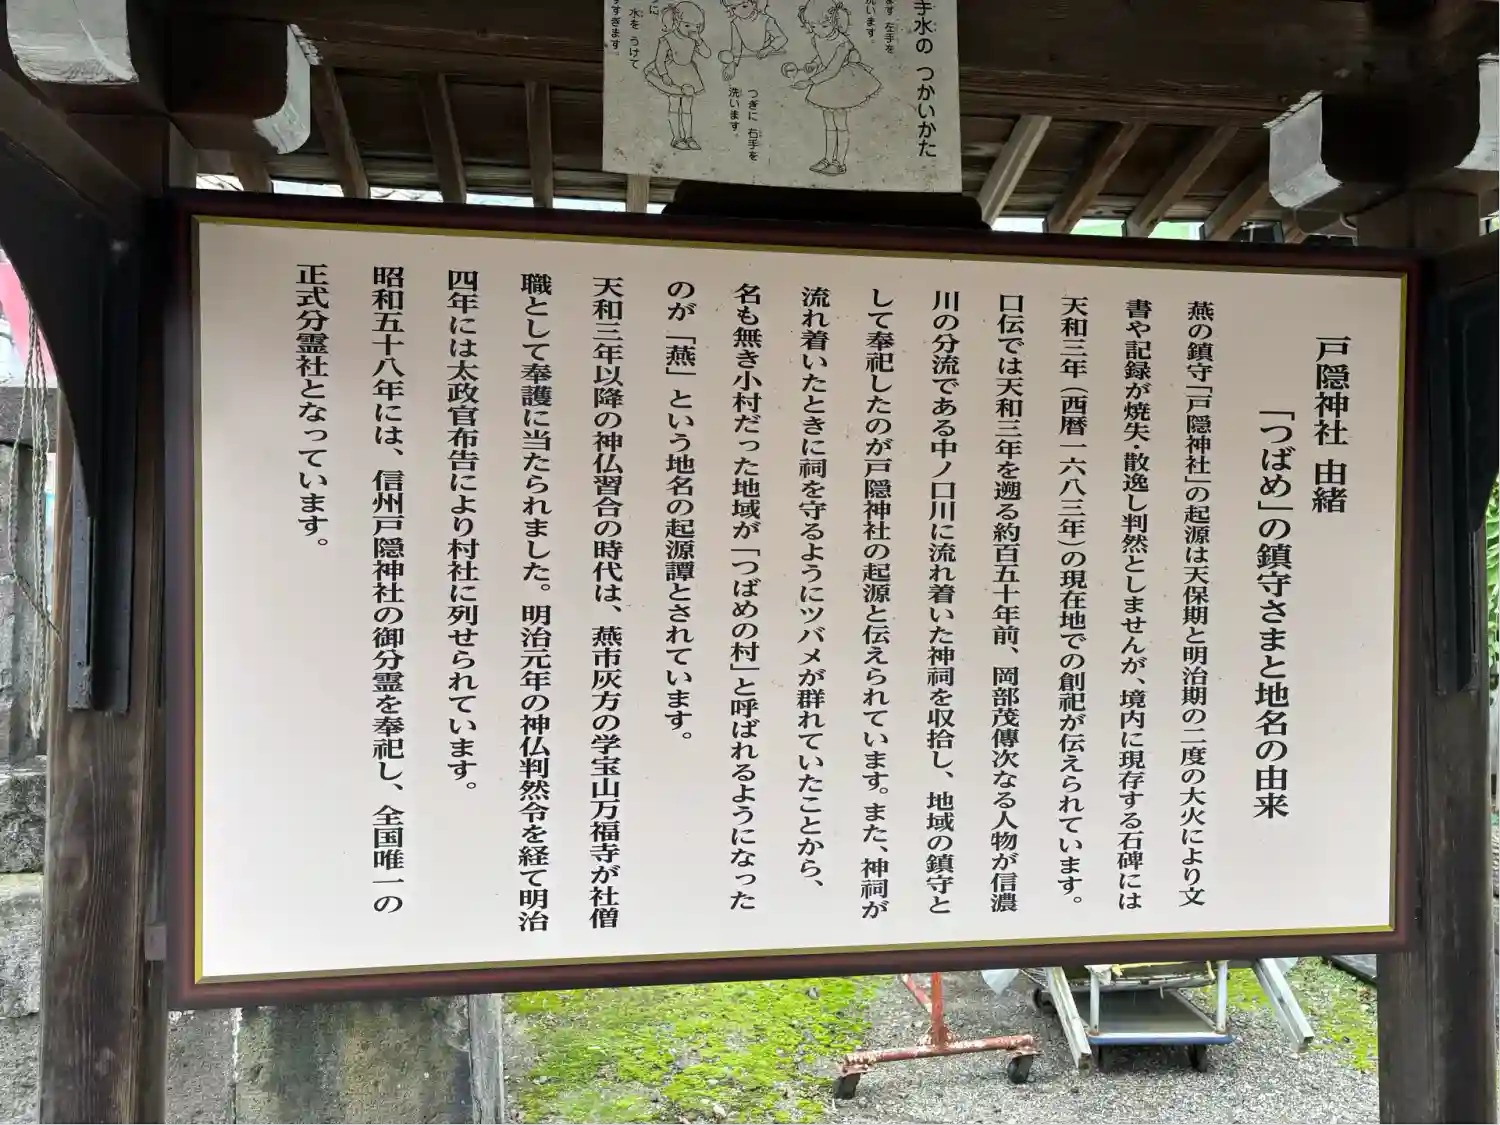 手水の つかいかた
ます 左手を
洗います。
つぎに 右手を
洗います。
水を うけて
すすぎます。
戸隠神社 由緒
「つばめ」の鎮守さまと地名の由来
燕の鎮守「戸隠神社」の起源は天保期と明治期の二度の大火により文
書や記録が焼失・散逸し判然としませんが、境内に現存する石碑には
天和三年(西暦一六八三年)の現在地での創祀が伝えられています。
口伝では天和三年を遡る約百五十年前、岡部茂傳次なる人物が信濃
川の分流である中ノ口川に流れ着いた神祠を収拾し、地域の鎮守と
して奉祀したのが戸隠神社の起源と伝えられています。また、神祠が
流れ着いたときに祠を守るようにツバメが群れていたことから、
名も無き小村だった地域が「つばめの村」と呼ばれるようになった
のが「燕」という地名の起源譚とされています。
天和三年以降の神仏習合の時代は、燕市灰方の学宝山万福寺が社僧
職として奉護に当たられました。明治元年の神仏判然令を経て明治
四年には太政官布告により村社に列せられています。
昭和五十八年には、信州戸隠神社の御分霊を奉祀し、全国唯一の
正式分霊社となっています。